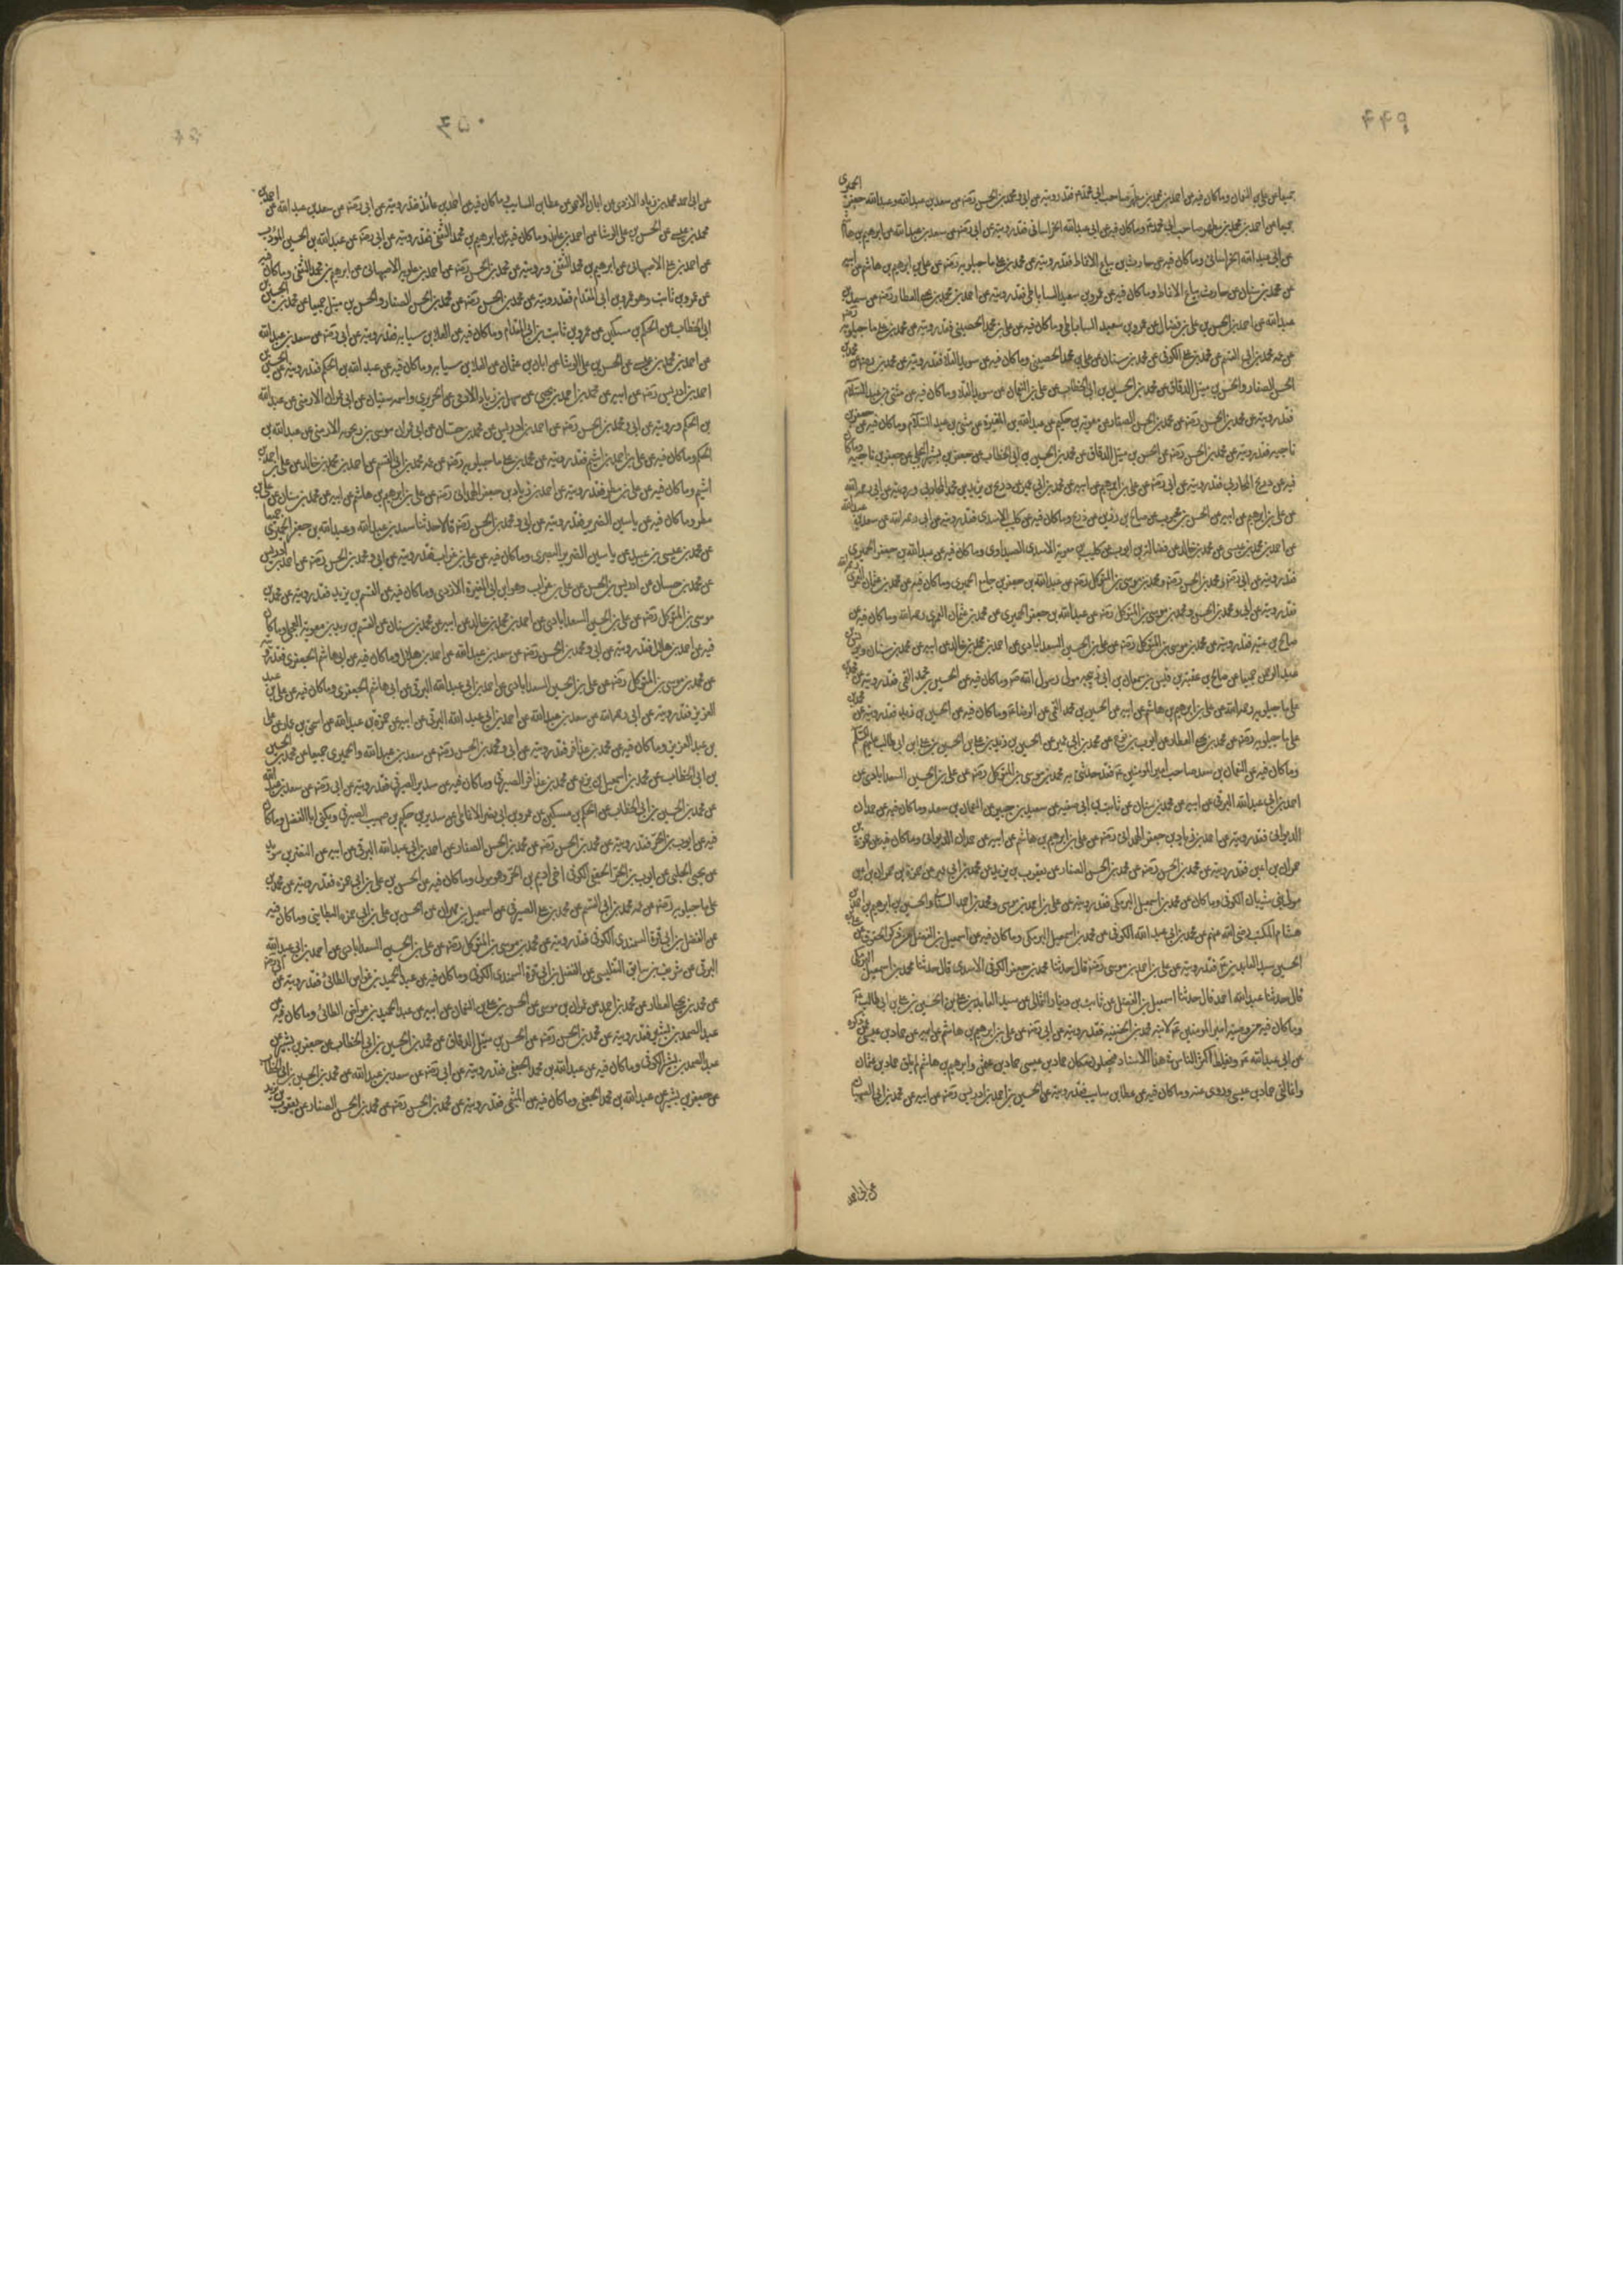 ٤٤٩
جميعا عن علي بن النعمان وماكان فيه عن احمد بن محمد بن مطهر صاحب ابي محمد ع فقد رويته عن ابي ومحمد بن الحسن رضهما عن سعد بن عبدالله وعبدالله جعفر الحميري
جميعا عن احمد بن محمد بن مطهر صاحب ابي محمد ع وماكان فيه عن ابي عبدالله الخراساني فقد رويته عن ابي رضه عن سعد بن عبدالله عن ابرهيم بن هاشم
عن ابي عبدالله الخراساني وماكان فيه عن حارث بياع الانماط فقد رويته عن محمد بن علي ماجيلويه رضه عن علي بن ابرهيم بن هاشم عن ابيه
عن محمد بن سنان عن حارث بياع الانماط وماكان فيه عن عمرو بن سعيد الساباطي فقد رويته عن احمد بن محمد بن يحيى العطار رضه عن سعد بن
عبدالله عن احمد بن الحسن بن علي بن فضال عن عمرو بن سعيد الساباطي وماكان فيه عن علي بن محمد الحضيني فقد رويته عن محمد بن علي ماجيلويه رضه
عن عمه محمد بن ابي القسم عن محمد بن علي الكوفي عن محمد بن سنان عن علي بن محمد الحضيني وماكان فيه عن سويد القلاء فقد رويته عن محمد بن
الحسن الصفار والحسن بن متيل الدقاق عن محمد بن الحسين بن ابي الخطاب عن علي بن النعمان عن سويد القلاء وماكان فيه عن مثنى بن عبد السلام
فقد رويته عن محمد بن الحسن رضه عن محمد بن الحسن الصفار عن معوية بن حكيم عن عبدالله بن المغيرة عن مثنى بن عبد السلام وماكان فيه عن جعفر بن
ناجيه فقد رويته عن محمد بن الحسن رضه عن الحسن بن متيل الدقاق عن محمد بن الحسين بن ابي الخطاب عن جعفر بن بشير البجلي عن جعفر بن ناجيه وماكان
فيه عن ذريح المحاربي فقد رويته عن ابي رضه عن علي بن ابرهيم عن ابيه عن محمد بن ابي عمير عن ذريح بن يزيد بن محمد المحاربي ورويته عن ابي رحمه الله
عن علي بن ابرهيم عن ابيه عن الحسن بن محبوب عن صالح بن رزين عن ذريح وماكان فيه عن كليب الاسدي فقد رويته عن ابي رحمه الله عن سعد بن عبدالله
عن احمد بن محمد بن عيسى عن محمد بن خالد عن فضالة بن ايوب عن كليب بن معوية الاسدي الصيداوي وماكان فيه عن عبدالله بن جعفر الحميري
فقد رويته عن ابي رضه ومحمد بن الحسن رضه ومحمد بن موسى بن المتوكل رضه عن عبدالله بن جعفر بن جامع الحميري وماكان فيه عن محمد بن عثمان العمري
فقد رويته عن ابي ومحمد بن الحسن ومحمد بن موسى بن المتوكل رضه عن عبدالله بن جعفر الحميري عن محمد بن عثمان العمري رحمه الله وماكان فيه عن
صالح بن عقبه فقد رويته عن محمد بن موسى بن المتوكل رضه عن علي بن الحسين السعدابادي عن احمد بن محمد بن خالد عن ابيه عن محمد بن سنان ويونس بن
عبدالرحمن جميعا عن صالح بن عقبه بن قيس بن سمعان بن ابي ذبيحه مولى رسول الله ص وماكان فيه عن الحسين بن محمد القمي فقد رويته عن محمد بن
علي ماجيلويه رحمه الله عن علي بن ابرهيم بن هاشم عن ابيه عن الحسين بن محمد القمي عن الرضا ع وماكان فيه عن الحسين بن زيد فقد رويته عن محمد بن
علي ماجيلويه رضه عن محمد بن يحيى العطار عن ايوب بن نوح عن محمد بن ابي عمير عن الحسين بن زيد بن علي بن الحسين بن علي بن ابي طالب عليهم السلام
وماكان فيه عن النعمان بن سعد صاحب امير المومنين ع فقد حدثني به محمد بن موسى بن المتوكل رضه عن علي بن الحسين السعدابادي عن
احمد بن ابي عبدالله البرقي عن ابيه عن محمد بن سنان عن ثابت بن ابي صفيه عن سعيد بن جبير عن النعمان بن سعد وماكان فيه عن حمدان
الديواني فقد رويته عن احمد بن زياد بن جعفر الهمداني رضه عن علي بن ابرهيم بن هاشم عن ابيه عن حمدان الديواني وماكان فيه عن حمزة بن
حمران بن اعين فقد رويته عن محمد بن الحسن رضه عن محمد بن الحسن الصفار عن يعقوب بن يزيد عن محمد بن ابي عمير عن حمزة بن حمران بن اعين
مولى بني شيبان الكوفي وماكان عن محمد بن اسمعيل البرمكي فقد رويته عن علي بن احمد بن موسى ومحمد بن احمد السناني والحسين بن ابرهيم بن احمد بن
هشام المكتب رضي الله عنهم عن محمد بن ابي عبدالله الكوفي عن محمد بن اسمعيل البرمكي وماكان فيه عن اسمعيل بن الفضل من ذكر الحقوق عن علي بن
الحسين سيد العابدين ع فقد رويته عن علي بن احمد بن موسى رضه قال حدثنا محمد بن جعفر الكوفي الاسدي قال حدثنا محمد بن اسمعيل البرمكي
قال حدثنا عبدالله احمد قال حدثنا اسمعيل بن الفضل عن ثابت بن دينار الثمالي عن سيد العابدين علي بن الحسين بن علي بن ابي طالب ع
وماكان فيه من وصية امير المومنين ع لابنه محمد بن الحنفيه فقد رويته عن ابي رضه عن علي بن ابرهيم بن هاشم عن ابيه عن حماد بن عيسى عمن ذكره
عن ابي عبدالله ع ويغلط اكثر الناس في هذا الاسناد فيجعلون مكان حماد بن عيسى حماد بن عثمن وابرهيم بن هاشم لم يلق حماد بن عثمان
وانما لقي حماد بن عيسى وروى عنه وماكان فيه عن عطا بن سايب فقد رويته عن الحسين بن احمد بن ادريس رضه عن ابيه عن محمد بن ابي الصهبان
عن ابي احمد
٤٥٠
عن ابي احمد محمد بن زياد الازدي عن ابان الاحمر عن عطا بن السايب وماكان فيه عن احمد بن عائذ فقد رويته عن ابي رضه عن سعد بن عبدالله عن احمد بن
محمد بن عيسى عن الحسن بن علي الوشا عن احمد بن عائذ وماكان فيه عن ابرهيم بن محمد الثقفي فقد رويته عن ابي رضه عن عبدالله بن الحسين المؤدب
عن احمد بن علي الاصبهاني عن ابرهيم بن محمد الثقفي ورويته عن محمد بن الحسن رضه عن احمد بن علويه الاصبهاني عن ابرهيم بن محمد الثقفي وماكان فيه
عن عمرو بن ثابت وهو عمرو بن ابي المقدام فقد رويته عن محمد بن الحسن رضه عن محمد بن الحسن الصفار والحسن بن متيل جميعا عن محمد بن الحسين بن
ابي الخطاب عن الحكم بن مسكين عن عمرو بن ثابت بن ابي المقدام وماكان فيه عن العلا بن سيابه فقد رويته عن ابي رضه عن سعد بن عبدالله
عن احمد بن محمد بن عيسى عن الحسن بن علي الوشا عن ابان بن عثمان عن العلا بن سيابه وماكان فيه عن عبدالله بن الحكم فقد رويته عن الحسين بن
احمد بن ادريس رضه عن ابيه عن محمد بن احمد بن يحيى عن سهل بن زياد الادمي عن الجريري واسمه سفيان عن ابي عمران الارمني عن عبدالله
بن الحكم ورويته عن ابي ومحمد بن الحسن رضه عن احمد بن ادريس عن محمد بن حسان عن ابي عمران موسى بن رنجويه الارمني عن عبدالله بن
الحكم وماكان فيه عن علي بن احمد بن اشيم فقد رويته عن محمد بن علي ماجيلويه رضه عن عمه محمد بن ابي القسم عن احمد بن محمد بن خالد عن علي بن احمد بن
اشيم وماكان فيه عن علي بن مطر فقد رويته عن احمد بن زياد بن جعفر الهمداني رضه عن علي بن ابرهيم بن هاشم عن ابيه عن محمد بن سنان عن علي بن
مطر وماكان فيه عن ياسين الضرير فقد رويته عن ابي ومحمد بن الحسن رضه قالا حدثنا سعد بن عبدالله وعبدالله بن جعفر الحميري جميعا
عن محمد بن عيسى بن عبيد عن ياسين الضرير البصري وماكان فيه عن علي بن غراب فقد رويته عن ابي ومحمد بن الحسن رضه عن احمد بن ادريس
عن محمد بن حسان عن ادريس بن الحسن عن علي بن غراب وهو ابن ابي المغيرة الازدي وماكان فيه عن القسم بن يزيد فقد رويته عن محمد بن
موسى بن المتوكل رضه عن علي بن الحسين السعدابادي عن احمد بن محمد بن خالد عن ابيه عن محمد بن سنان عن القسم بن بريد بن معوية العجلي وماكان
فيه عن احمد بن هلال فقد رويته عن ابي ومحمد بن الحسن رضه عن سعد بن عبدالله عن احمد بن هلال وماكان فيه عن ابي هاشم الجعفري فقد رويته
عن محمد بن موسى بن المتوكل رضه عن علي بن الحسين السعدابادي عن احمد بن ابي عبدالله البرقي عن ابي هاشم الجعفري وماكان فيه عن علي بن عبد
العزيز فقد رويته عن ابي رحمه الله عن سعد بن عبدالله عن احمد بن ابي عبد الله البرقي عن ابيه عن حمزة بن عبدالله عن اسحق بن عمار عن علي
بن عبد العزيز وماكان فيه عن محمد بن عذافر فقد رويته عن ابي ومحمد بن الحسن رضه عن سعد بن عبدالله والحميري جميعا عن محمد بن الحسين
بن ابي الخطاب عن محمد بن اسمعيل بن بزيع عن محمد بن عذافر الصيرفي وماكان فيه عن سدير الصيرفي فقد رويته عن ابي رضه عن سعد بن عبدالله
عن محمد بن الحسين بن ابي الخطاب عن الحكم بن مسكين عن عمرو بن ابي نصر الانماطي عن سدير بن حكيم بن صهيب الصيرفي ويكنى ابا الفضل وماكان
فيه عن ايوب بن الحر فقد رويته عن محمد بن الحسن رضه عن محمد بن الحسن الصفار عن احمد بن ابي عبدالله البرقي عن ابيه عن النضر بن سويد
عن يحيى الحلبي عن ايوب بن الحر الجعفي الكوفي اخي اديم بن الحر وهو مولى وماكان فيه عن الحسن بن علي بن ابي حمزه فقد رويته عن محمد بن
علي ماجيلويه رضه عن عمه محمد بن ابي القسم عن محمد بن علي الصيرفي عن اسمعيل بن مهران عن الحسن بن علي بن ابي حمزه البطايني وماكان فيه
عن الفضل بن ابي قرة السمندي الكوفي فقد رويته عن محمد بن موسى بن المتوكل رضه عن علي بن الحسين السعدابادي عن احمد بن ابي عبدالله
البرقي عن شريف بن سابق التفليسي عن الفضل بن ابي قرة السمندي الكوفي وماكان فيه عن عبد الحميد بن عواض الطائي فقد رويته عن ابي رضه
عن محمد بن يحيى العطار عن محمد بن احمد عن عمران بن موسى عن الحسن بن علي بن النعمان عن ابيه عن عبد الحميد بن عواض الطائي وماكان فيه عن
عبد الصمد بن بشير فقد رويته عن محمد بن الحسن رضه عن الحسن بن متيل الدقاق عن محمد بن الحسين بن ابي الخطاب عن جعفر بن بشير عن
عبد الصمد بن بشير الكوفي وماكان فيه عن عبدالله بن محمد الجعفي فقد رويته عن ابي رضه عن سعد بن عبدالله عن محمد بن الحسين بن ابي الخطاب
عن جعفر بن بشير عن عبدالله بن محمد الجعفي وماكان فيه عن الميثمي فقد رويته عن محمد بن الحسن رضه عن محمد بن الحسن الصفار عن يعقوب بن يزيد